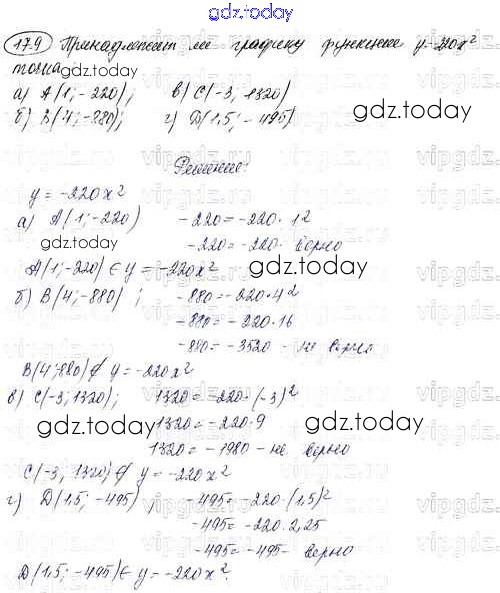 gdz.today
17.9 Принадлежит ли графику функции y=-220x²
точка:
gdz.today
а) A(1; -220); в) C(-3; 1320)
gdz.today
б) B(4; -880); г) D(1,5; -495)
Решение:
y = -220x²
а) A(1; -220) -220 = -220 · 1²
gdz.today
-220 = -220 - верно
A(1; -220) ∈ y = -220x²
gdz.today
б) B(4; -880); -880 = -220 · 4²
-880 = -220 · 16
-880 = -3520 - не верно
B(4; 880) ∉ y = -220x²
в) C(-3; 1320); 1320 = -220 · (-3)²
1320 = -220 · 9
gdz.today
gdz.today
1320 = -1980 - не верно
C(-3; 1320) ∉ y = -220x²
г) D(1,5; -495) -495 = -220 · (1,5)²
-495 = -220 · 2,25
-495 = -495 - верно
D(1,5; -495) ∈ y = -220x².